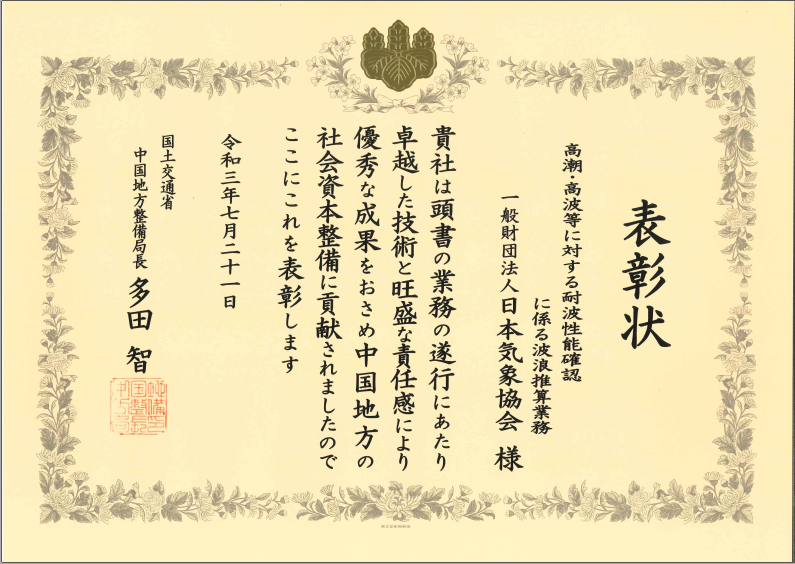 表彰状
高潮・高波等に対する耐波性能確認
に係る波浪推算業務
一般財団法人日本気象協会 様
貴社は頭書の業務の遂行にあたり
卓越した技術と旺盛な責任感により
優秀な成果をおさめ中国地方の
社会資本整備に貢献されましたので
ここにこれを表彰します
令和三年七月二十一日
国土交通省
中国地方整備局長 多田 智